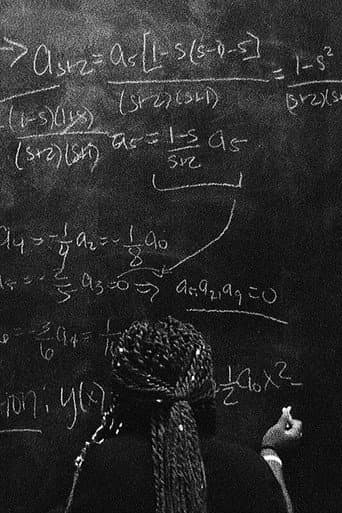 → a_{s+2} = a_s [1-s(s-1)-s] / (s+2)(s+1) = 1-s² / (s+2)(s+
(1-s)(1+s) / (s+2)(s+1) a_s = 1-s / s+2 a_s
a_4 = -1/4 a_2 = -1/8 a_0
= -2/5 a_3 = 0 ⇒ a_5, a_7, a_9 = 0
= -3/6 a_4 = 1/1
ion: y(x) 1/2 a_0 x² -